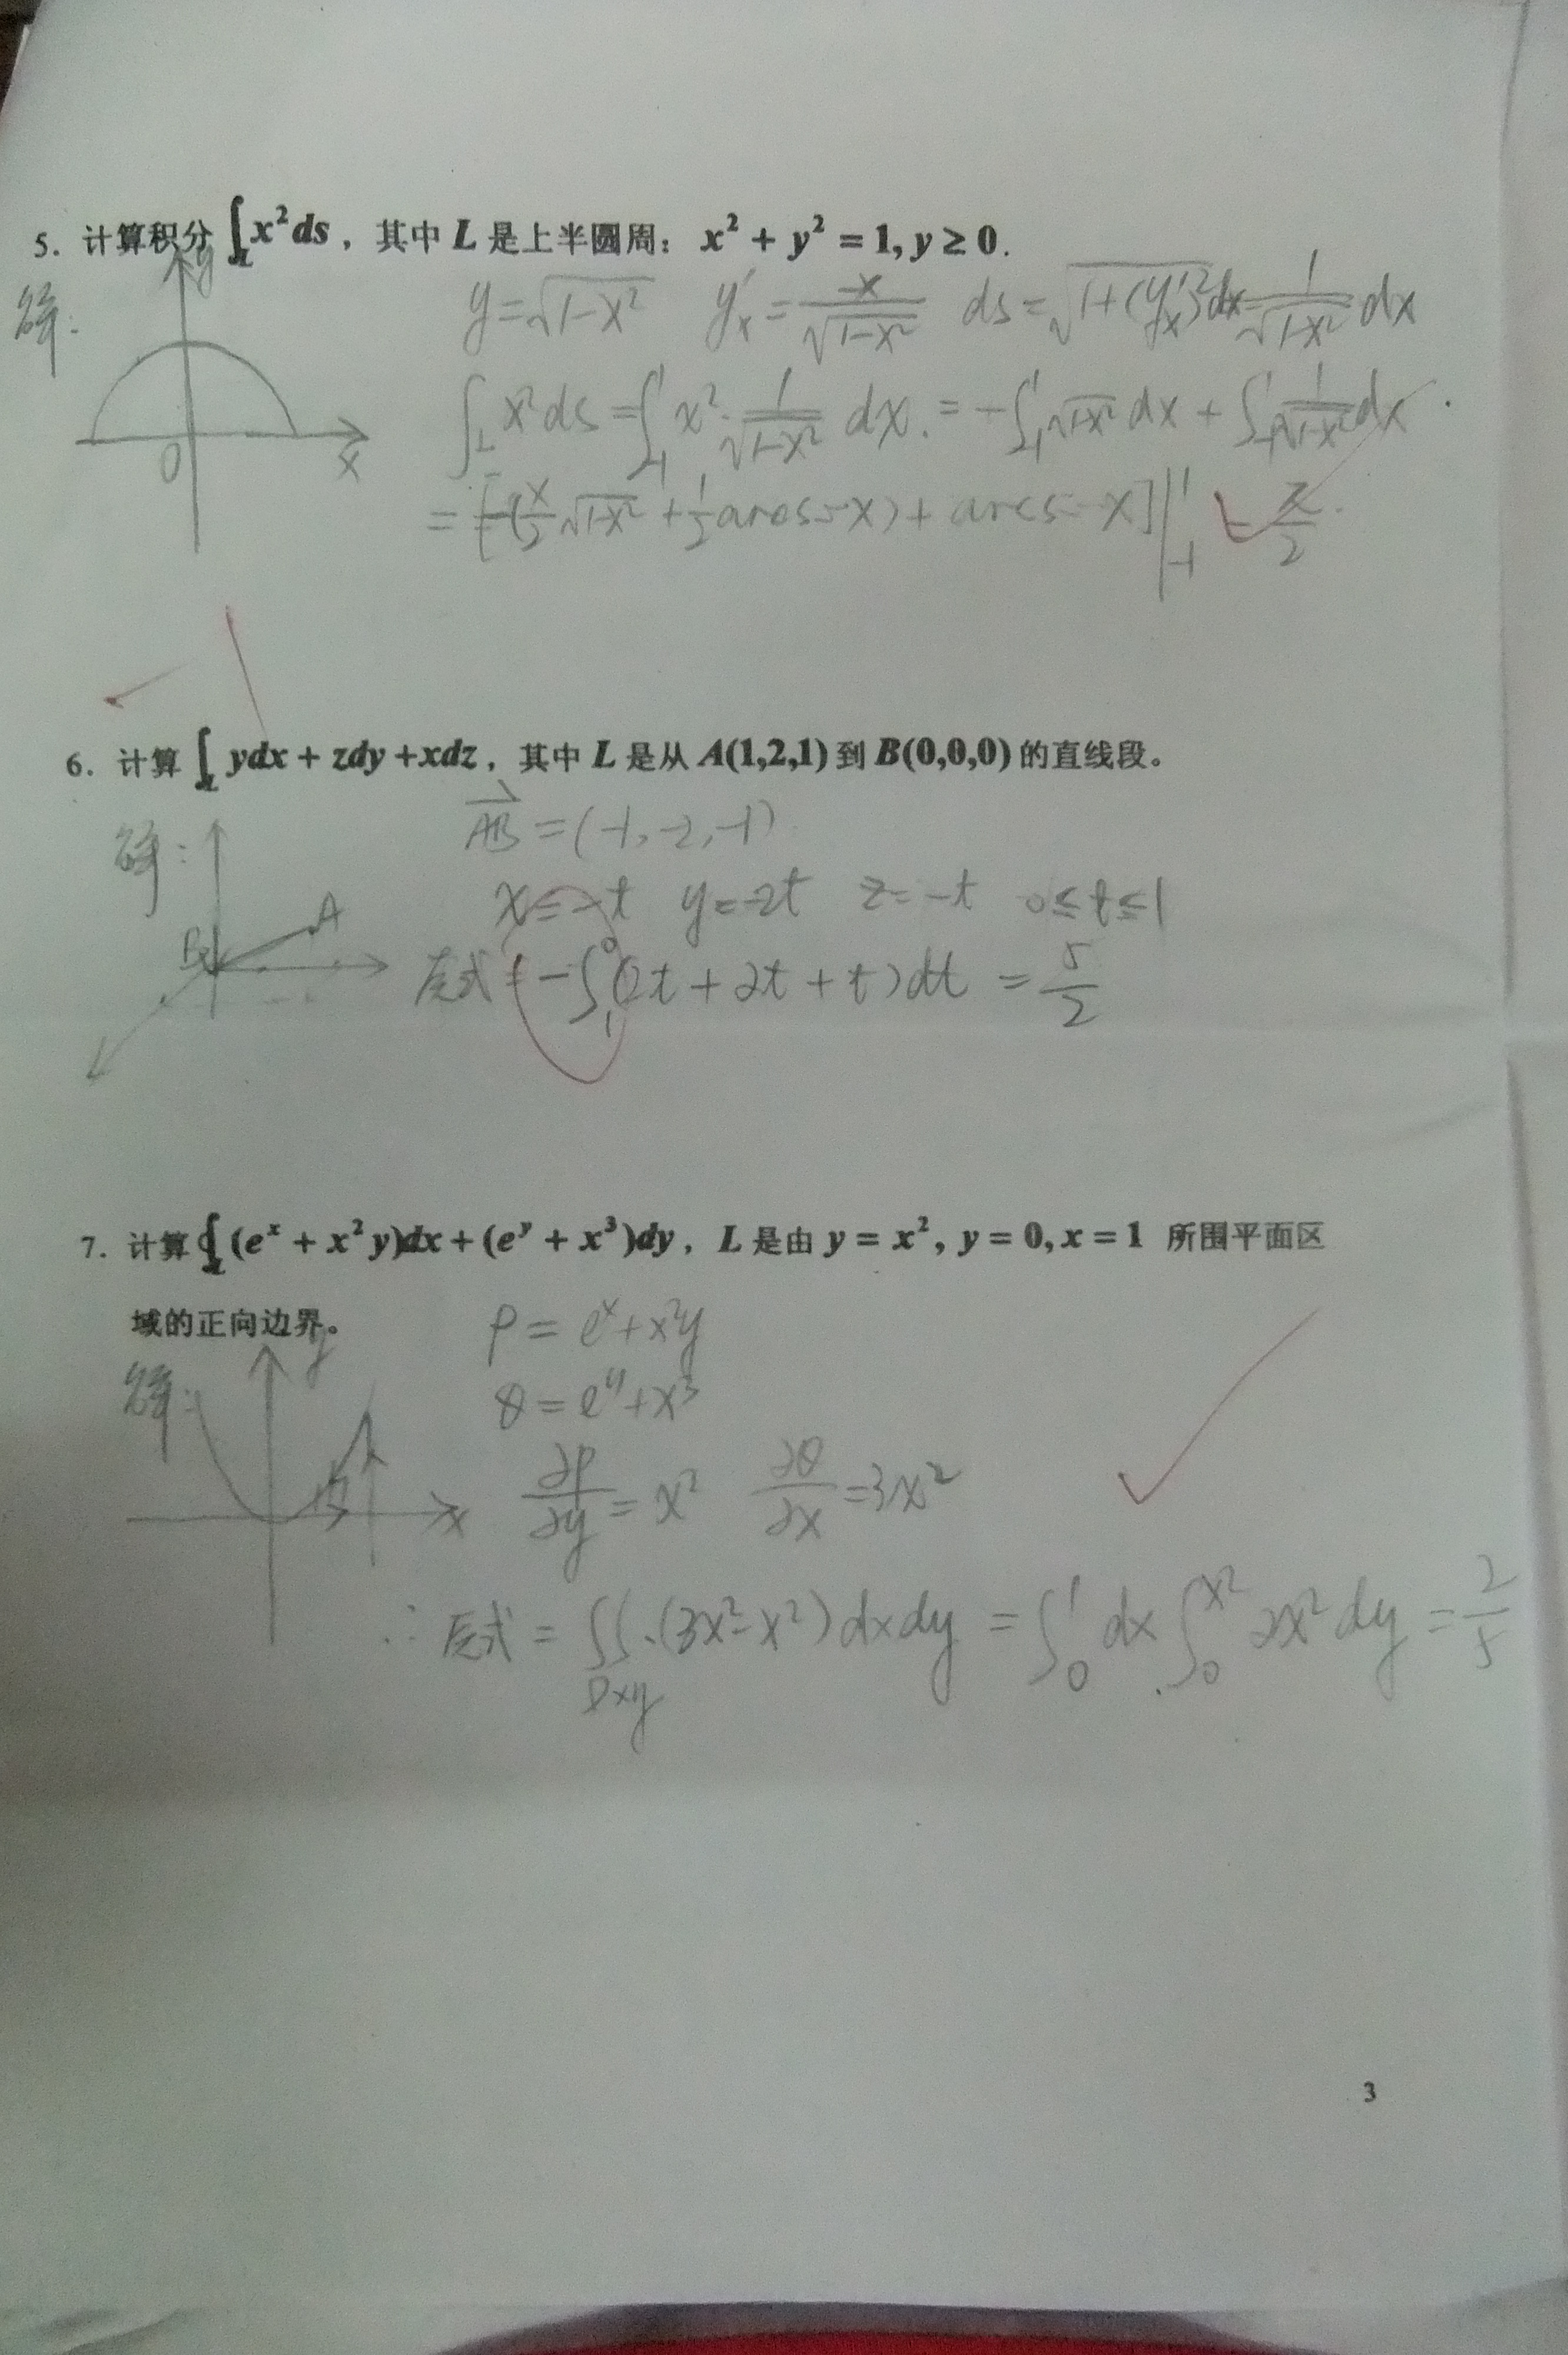 5. 计算积分 ∫_L x²ds，其中 L 是上半圆周：x² + y² = 1, y ≥ 0.
解: y
y=√(1-x²) y'ₓ = -x/√(1-x²) ds=√(1+(y'ₓ)²)dx=1/√(1-x²) dx
∫_L x²ds=∫₋₁¹ x²·1/√(1-x²) dx. = -∫₋₁¹√(1-x²) dx + ∫₋₁¹ 1/√(1-x²) dx.
O x
= [-(x/2 √(1-x²) + 1/2 arcsin x) + arcsin x]|₋₁¹ = π/2.
6. 计算 ∫_L ydx + zdy + xdz，其中 L 是从 A(1,2,1) 到 B(0,0,0) 的直线段。
解: AB = (-1, -2, -1)
x=-t y=-2t z=-t 0≤t≤1
B A
原式 = -∫₁⁰(2t + 2t + t)dt = 5/2
7. 计算 ∮_L (eˣ + x²y)dx + (eʸ + x³)dy，L 是由 y = x², y = 0, x = 1 所围平面区
域的正向边界。 P = eˣ+x²y
解: y
Q = eʸ+x³
∂P/∂y = x² ∂Q/∂x =3x²
x
∴ 原式 = ∬_Dxy (3x²-x²)dxdy = ∫₀¹ dx ∫₀^x² 2x² dy = 2/5
3